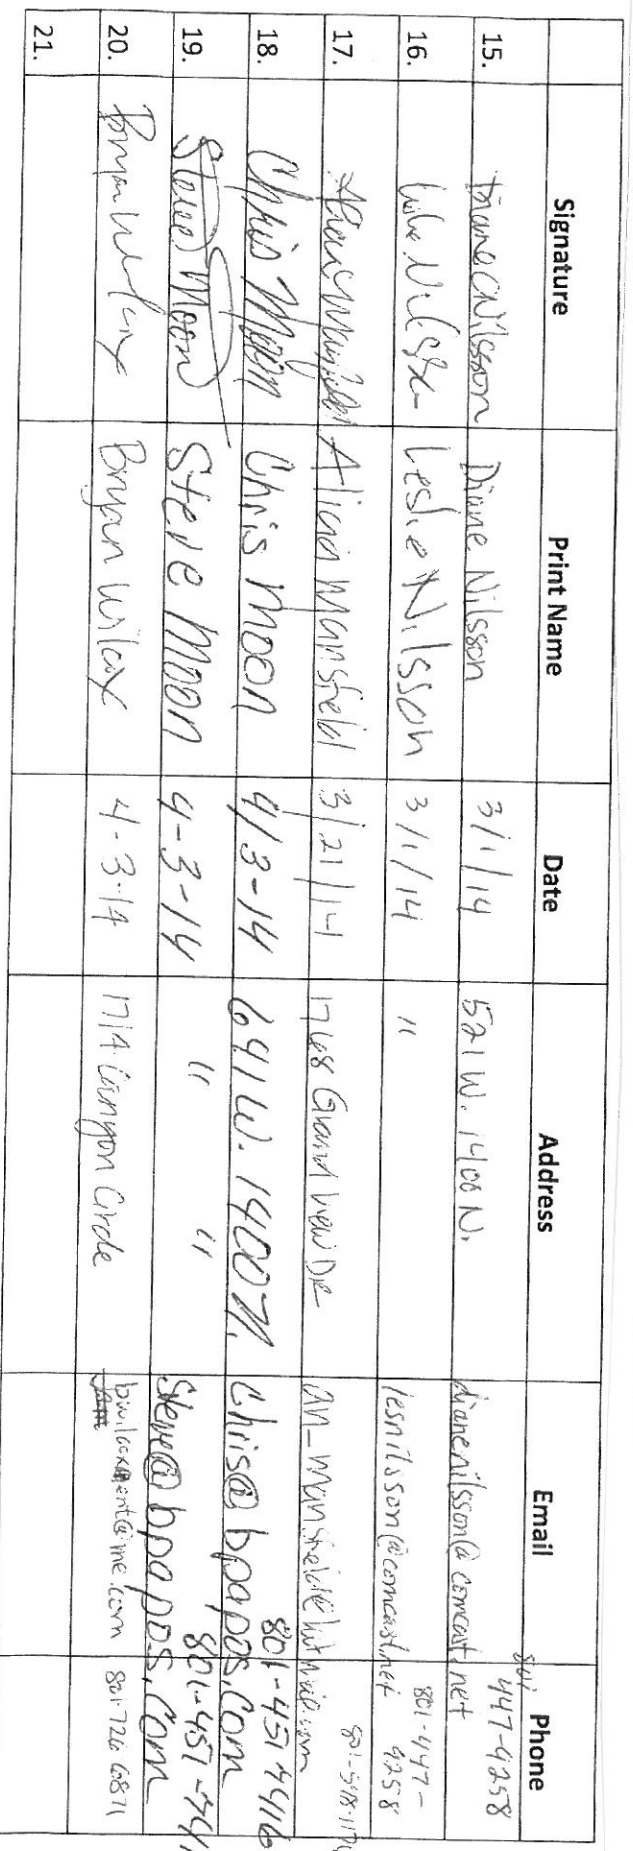 Signature Print Name Date Address Email Phone
15. Diane Nilsson Diane Nilsson 3/1/14 521 W. 1400 N. dianenilsson@comcast.net 801 447-9258
16. Leslie Nilsson 3/1/14 " lesnilsson@comcast.net 801-447-9258
17. Alicia Mansfield 3/21/14 1768 Grand View DR
18. Chris Moon Chris Moon 4/3-14 691 W. 1400 N. Chris@bpapos.com 801-451-7416
19. Steve Moon Steve Moon 4-3-14 " " Steve@bpapos.com 801-451-741
20. Bryan Wilcox Bryan Wilcox 4-3-14 1714 Canyon Circle 801 726 6871
21.